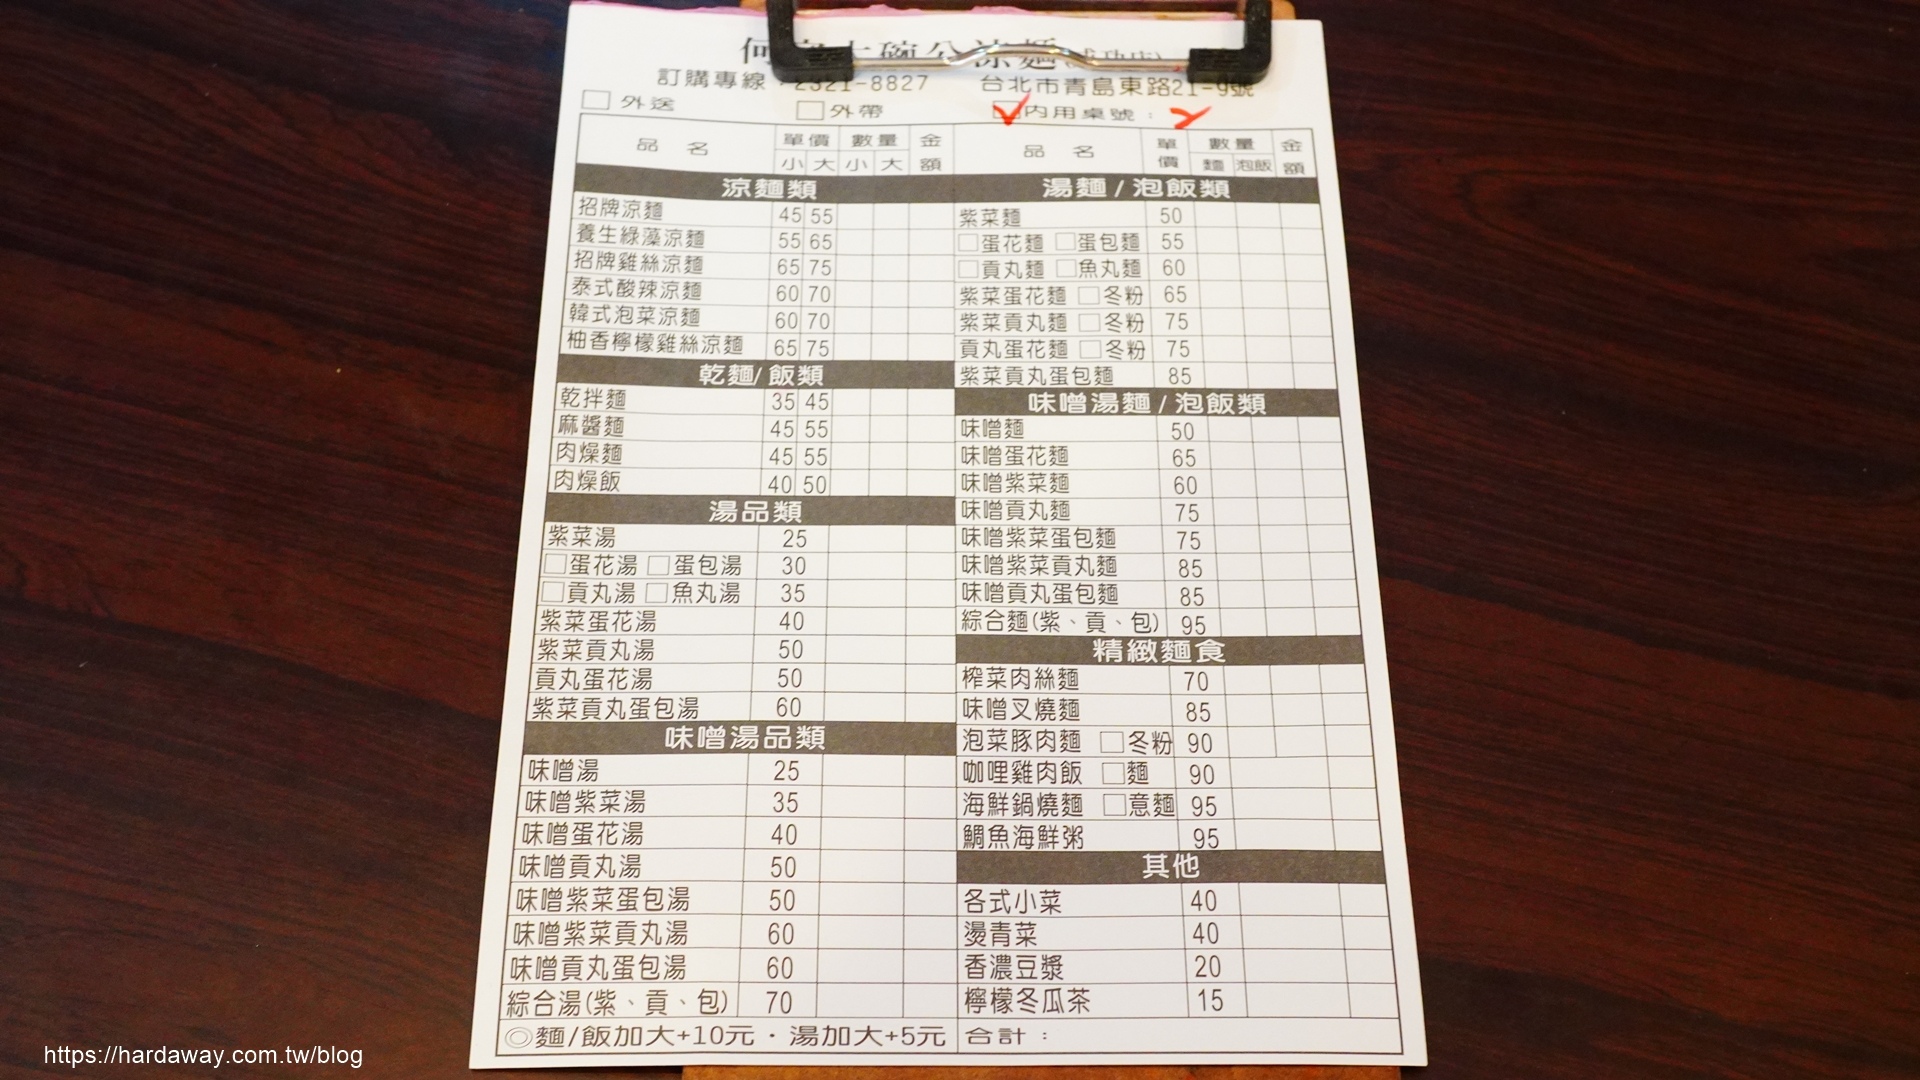 訂購專線：2321-8827 台北市青島東路21-9號
□外送 □外帶 ☑內用桌號：2
品 名 單價 數量 金額
小 大 小 大
涼麵類
招牌涼麵 45 55
養生綠藻涼麵 55 65
招牌雞絲涼麵 65 75
泰式酸辣涼麵 60 70
韓式泡菜涼麵 60 70
柚香檸檬雞絲涼麵 65 75
乾麵/飯類
乾拌麵 35 45
麻醬麵 45 55
肉燥麵 45 55
肉燥飯 40 50
湯品類
紫菜湯 25
□蛋花湯 □蛋包湯 30
□貢丸湯 □魚丸湯 35
紫菜蛋花湯 40
紫菜貢丸湯 50
貢丸蛋花湯 50
紫菜貢丸蛋包湯 60
味噌湯品類
味噌湯 25
味噌紫菜湯 35
味噌蛋花湯 40
味噌貢丸湯 50
味噌紫菜蛋包湯 50
味噌紫菜貢丸湯 60
味噌貢丸蛋包湯 60
綜合湯(紫、貢、包) 70
◎麵/飯加大+10元・湯加大+5元
品 名 單價 數量 金額
麵 泡飯
湯麵/泡飯類
紫菜麵 50
□蛋花麵 □蛋包麵 55
□貢丸麵 □魚丸麵 60
紫菜蛋花麵 □冬粉 65
紫菜貢丸麵 □冬粉 75
貢丸蛋花麵 □冬粉 75
紫菜貢丸蛋包麵 85
味噌湯麵/泡飯類
味噌麵 50
味噌蛋花麵 65
味噌紫菜麵 60
味噌貢丸麵 75
味噌紫菜蛋包麵 75
味噌紫菜貢丸麵 85
味噌貢丸蛋包麵 85
綜合麵(紫、貢、包) 95
精緻麵食
榨菜肉絲麵 70
味噌叉燒麵 85
泡菜豚肉麵 □冬粉 90
咖哩雞肉飯 □麵 90
海鮮鍋燒麵 □意麵 95
鯛魚海鮮粥 95
其他
各式小菜 40
燙青菜 40
香濃豆漿 20
檸檬冬瓜茶 15
合計：
https://hardaway.com.tw/blog